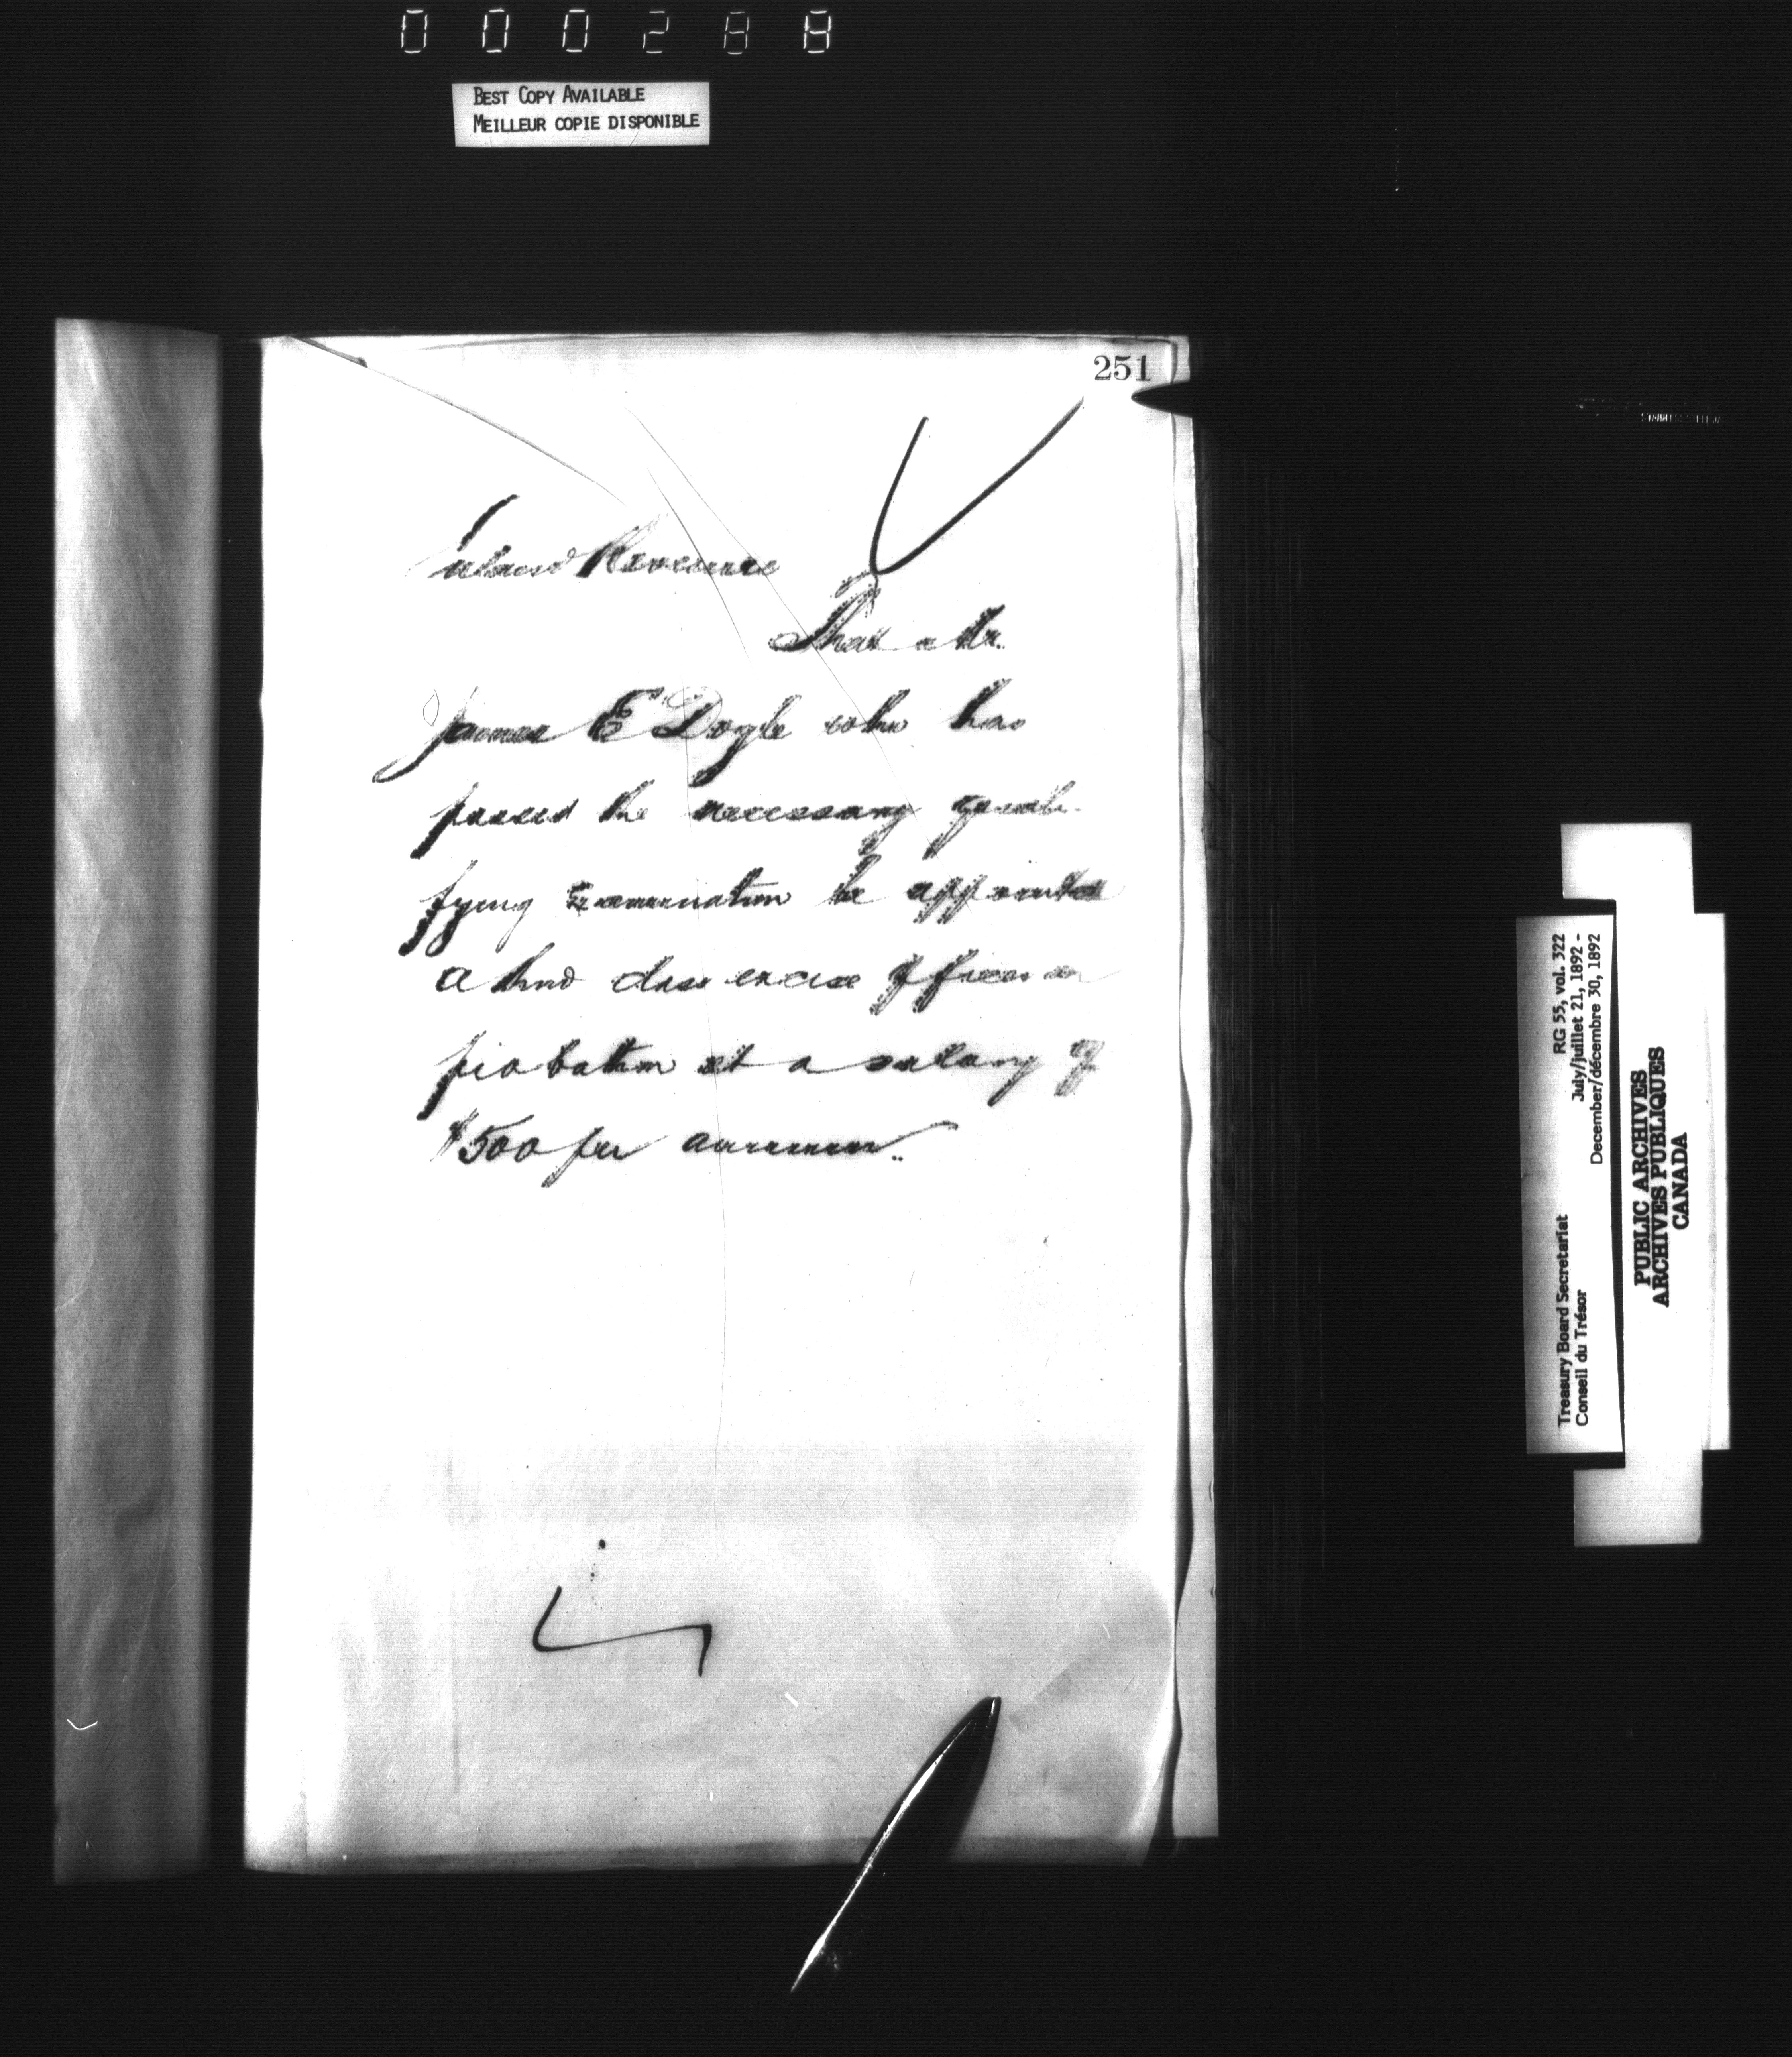 000288
BEST COPY AVAILABLE
MEILLEUR COPIE DISPONIBLE
251
Inland Revenue
That Mr.
James E Doyle who has
passed the necessary quali-
fying Examination be appointed
a third class excise officer on
probation at a salary of
$500 per annum.
RG 55, vol. 322
July/juillet 21, 1892 -
December/décembre 30, 1892
Treasury Board Secretariat
Conseil du Trésor
PUBLIC ARCHIVES
ARCHIVES PUBLIQUES
CANADA